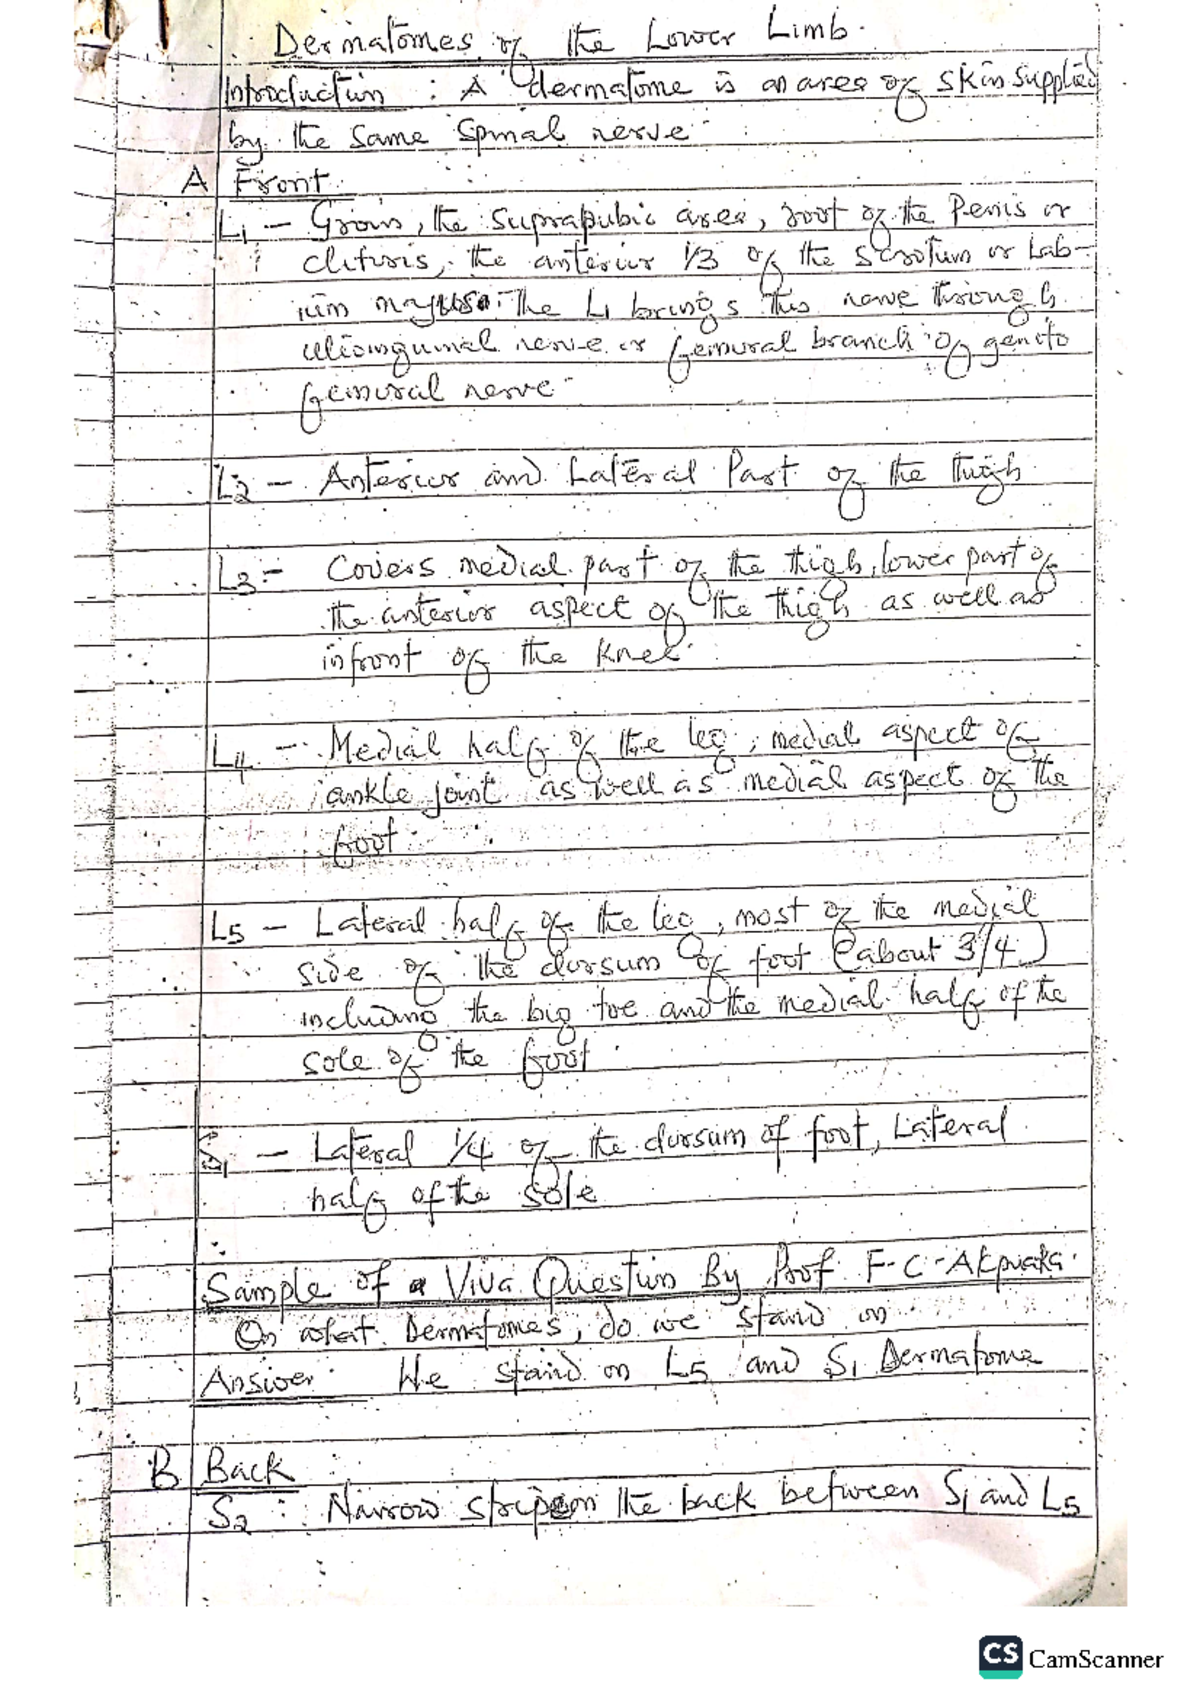 Dermatomes of the Lower Limb.
Introduction : A dermatome is an area of skin supplied
by the same spinal nerve
A Front
L1 - Groin, the suprapubic area, root of the Penis or
clitoris, the anterior 1/3 of the scrotum or Lab-
ium majus. The L1 brings this nerve through
ilioinguinal nerve or femoral branch of genito
femoral nerve
L2 - Anterior and Lateral Part of the thigh
L3 - Covers medial part of the thigh, lower part of
the anterior aspect of the thigh as well as
infront of the knee.
L4 - Medial half of the leg, medial aspect of
ankle joint as well as medial aspect of the
foot
L5 - Lateral half of the leg, most of the medial
side of the dorsum of foot (about 3/4)
including the big toe and the medial half of the
sole of the foot
S1 - Lateral 1/4 of the dorsum of foot, Lateral
half of the sole
Sample of a Viva Question By Prof F.C. Akpuaka.
On what Dermatomes, do we stand on
Answer: We stand on L5 and S1 Dermatome
B Back
S2 : Narrow strip on the back between S1 and L5
CS CamScanner